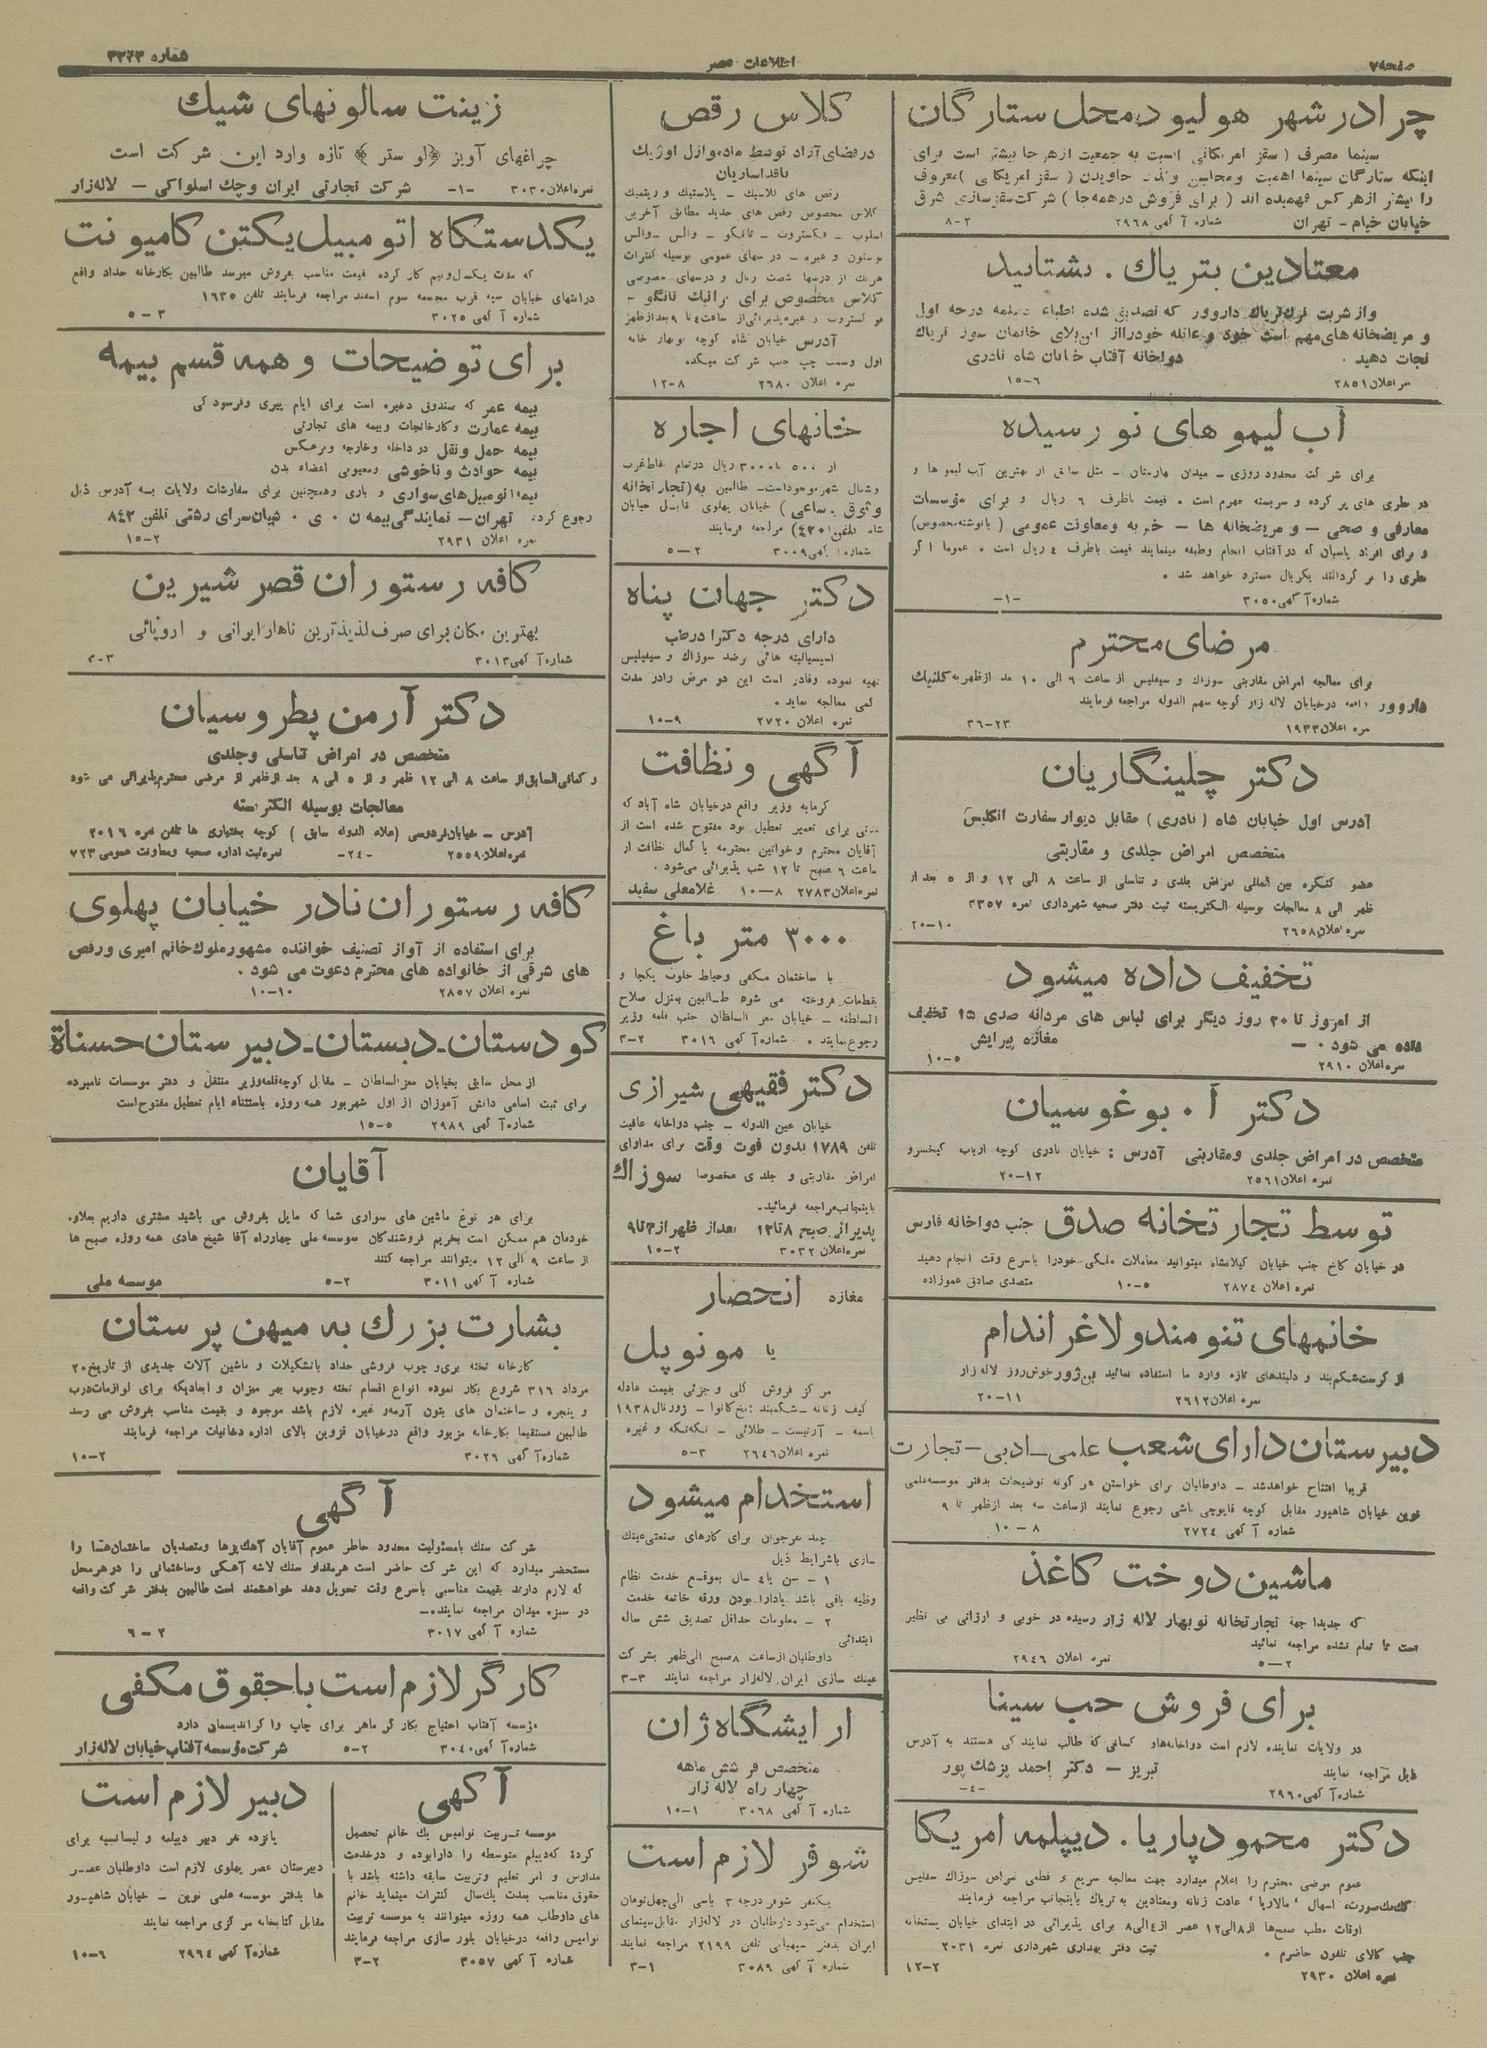 صفحه ۷
اطلاعات عصر
شماره ۳۲۷۳
چرا در شهر هوليود محل ستارگان
سينما مصرف ( سقز امريكائى ) نسبت به جمعيت از هر جا بيشتر است براى
اينكه ستارگان سينما اهميت ومحاسن جاويدن ( سقز امريكائى ) معروف
را بيشتر از هر كس فهميده اند ( براى فروش در همه جا ) شركت سقز سازى شرق
خيابان خيام - تهران
شماره آگهى ۲۹۶۸
۲-۸
معتادين بترياك . بشتابيد
و از شربت ترك ترياك داروور كه تصديق شده اطباء درجه اول
و مريضخانه هاى مهم است خود و عائله خود را از اين بلاى خانمان سوز ترياك
نجات دهيد .
دواخانه آفتاب خيابان شاه نادرى
نمره اعلان ۲۸۵۱
۶-۱۵
آب ليموهاى نو رسيده
براى شركت محدود روزى - ميدان بهارستان - مثل سابق از بهترين آب ليموها و
در بطرى هاى پر كرده و سربسته مهرم است . قيمت باظرف ۶ ريال و براى مؤسسات
معارفى و صحى - و مريضخانه ها - خيريه ومعاونت عمومى ( بانوشته مخصوص )
و براى افراد پاسبان كه در آفتاب انجام وظيفه مينمايند قيمت باظرف ٤ ريال است . عموما اگر
بطرى را بر گردانند يكريال مسترد خواهد شد .
شماره آگهى ۳۰۵۰
-۱-
مرضاى محترم
براى معالجه امراض مقاربتى سوزاك و سيفيليس از ساعت ۶ الى ۱۰ بعد از ظهر به كلينيك
داروور واقعه در خيابان لاله زار كوچه سهم الدوله مراجعه فرمايند
نمره اعلان ۱۹۳۳
۲۳-۲۶
دكتر چلينگاريان
آدرس اول خيابان شاه ( نادرى ) مقابل ديوار سفارت انگليس
متخصص امراض جلدى و مقاربتى
عضو كنگره بين المللى امراض جلدى و تناسلى از ساعت ۸ الى ۱۲ و از ۵ بعد از
ظهر الى ۸ معالجات بوسيله الكتريسته ثبت دفتر صحيه شهردارى نمره ۳۳۵۷
نمره اعلان ۲۶۵۸
۱۰-۲۰
تخفيف داده ميشود
از امروز تا ۲۰ روز ديگر براى لباس هاى مردانه صدى ۱۵ تخفيف
داده مى شود . -
مغازه پيرايش
نمره اعلان ۲۹۱۰
۵-۱۰
دكتر آ . بوغوسيان
متخصص در امراض جلدى و مقاربتى آدرس : خيابان نادرى كوچه ارباب كيخسرو
نمره اعلان ۲۵۶۱
۱۲-۲۰
توسط تجارتخانه صدق جنب دواخانه فارس
در خيابان كاخ جنب خيابان كيلانشاه ميتوانيد معاملات ملكى خودرا باسرع وقت انجام دهيد
متصدى صادق عموزاده
نمره اعلان ۲۸۷٤
۵-۱۰
خانمهاى تنومند و لاغر اندام
از كرست شكم بند و دلبندهاى تازه وارد ما استفاده نمائيد بن ژور خوش روز لاله زار
نمره اعلان ۲۶۱۲
۱۱-۲۰
دبيرستان داراى شعب علمى - ادبى - تجارت
قريبا افتتاح خواهد شد - داوطلبان براى خواستن هر گونه توضيحات بدفتر موسسه علمى
نوين خيابان شاهپور مقابل كوچه قاپوچى باشى رجوع نمايند از ساعت سه بعد از ظهر تا ۹
شماره آگهى ۲۷۲٤
۸-۱۰
ماشين دوخت كاغذ
كه جديدا جهة تجارتخانه نوبهار لاله زار رسيده در خوبى و ارزانى بى نظير
است تا تمام نشده مراجعه نمائيد
نمره اعلان ۲۹٤۶
۲-۵
براى فروش حب سينا
در ولايات نماينده لازم است دواخانه هاو كسانى كه طالب نمايندگى هستند به آدرس
ذيل مراجعه نمايند
تبريز - دكتر احمد پزشك پور
شماره آگهى ۲۹۶۰
-٤-
دكتر محمود پاريا . ديپلمه امريكا
عموم مرضى محترم را اعلام ميدارد جهت معالجه سريع و قطعى امراض سوزاك سفليس
كك مك صورت، اسهال ' مالاريا ' عادت زنانه ومعتادين به ترياك باينجانب مراجعه فرمايند
اوقات مطب صبح ها از ۸ الى ۱۲ عصر از ٤ الى ۸ براى پذيرائى در ابتداى خيابان پستخانه
جنب كالاى تلفون حاضرم .
ثبت دفتر بهدارى شهردارى نمره ۲۰۳۱
نمره اعلان ۲۹۳۰
۲-۱۲
كلاس رقص
در فضاى آزاد توسط مادموازل اوژنيك
باغداساريان
رقص هاى كلاسيك - پلاستيك و ريتميك
كلاس مخصوص رقص هاى جديد مطابق آخرين
اسلوب - فكستروت - تانگو - والس - والس
بوستون و غيره - درسهاى عمومى بوسيله كنترات
هريك از درسها شصت ريال و درسهاى خصوصى
كلاس مخصوص براى پراتيك تانگو -
فوكستروت و غيره پذيرائى از ساعت ٤ تا ۹ بعد از ظهر
آدرس خيابان شاه كوچه نوبهار خانه
اول دست چپ جنب شركت ميكده.
نمره اعلان ۲۶۸۰
۸-۱۲
خانهاى اجاره
از ۵۰۰ تا ۳۰۰۰ ريال در تمام نقاط غرب
و شمال شهر موجود است - طالبين به ( تجارتخانه
وثوق ساعى ) خيابان پهلوى فاصل خيابان
شاه تلفن ( ٤۲۰ ) مراجعه فرمايند
شماره آگهى ۳۰۰۹
۲-۵
دكتر جهان پناه
داراى درجه دكترا در طب
اسپسياليته هائى بر ضد سوزاك و سيفيليس
تهيه نموده و قادر است اين دو مرض را در مدت
كمى معالجه نمايد .
نمره اعلان ۲۷۲۰
۹-۱۰
آگهى و نظافت
گرمابه وزير واقع در خيابان شاه آباد كه
مدتى براى تعمير تعطيل بود مفتوح شده است از
آقايان محترم و خوانين محترمه با كمال نظافت از
ساعت ۶ صبح تا ۱۲ شب پذيرائى مى شود .
نمره اعلان ۲۷۸۳
۸-۱۰
غلامعلى سفيد
۳۰۰۰ متر باغ
با ساختمان مكفى وحياط خلوت يكجا و
بقطعات فروخته مى شود طالبين بمنزل صلاح
السلطنه - خيابان معز السلطان جنب قلعه وزير
رجوع نمايند .
شماره آگهى ۳۰۱۶
۲-۳
دكتر فقيهى شيرازى
خيابان عين الدوله - جنب دواخانه عافيت
تلفن ۱۷۸۹ بدون فوت وقت براى مداواى
امراض مقاربتى و جلدى مخصوصا سوزاك
باينجانب مراجعه فرمائيد.
پذيرائى صبح ۸ تا ۱۲ بعد از ظهر از ۳ تا ۹
نمره اعلان ۳۰۳۲
۲-۱۰
مغازه انحصار
يا مونوپل
مركز فروش كلى و جزئى بقيمت عادله
كيف زنانه - شكمبند - نخ كانوا - ژورنال ۱۹۳۸
اسمه - آرتيست - طلائى - تكه تكه و غيره
نمره اعلان ۲۶٤۶
۳-۵
استخدام ميشود
چند نفر جوان براى كارهاى صنعتى عينك
سازى باشرايط ذيل
۱ - سن يا ٤ سال بموقع خدمت نظام
وظيفه باقى باشد يا دارا بودن ورقه خاتمه خدمت
۲ - معلومات حداقل تصديق شش ساله
ابتدائى
داوطلبان از ساعت ۸ صبح الى ظهر بشركت
عينك سازى ايران لاله زار مراجعه نمايند
۳-۳
ارايشگاه ژان
متخصص فر شش ماهه
چهار راه لاله زار
شماره آگهى ۳۰۶۸
۱-۱۰
شوفر لازم است
يكنفر شوفر درجه ۳ باسى الى چهل تومان
استخدام مى شود داوطلبان در لاله زار مقابل سينماى
ايران بدفتر كيهانى تلفن ۲۱۹۹ مراجعه نمايند
شماره آگهى ۳۰۸۹
۱-۳
زينت سالونهاى شيك
چراغهاى آويز ( لوستر ) تازه وارد اين شركت است
نمره اعلان ۳۰۳۰
-۱-
شركت تجارتى ايران وچك اسلواكى - لاله زار
يكدستگاه اتومبيل يكتن كاميونت
كه مدت يكسال ونيم كار كرده قيمت مناسب بفروش ميرسد طالبين بكارخانه حداد واقع
در انتهاى خيابان سپه قرب مجسمه سوم اسفند مراجعه فرمايند تلفن ۱۶۳۵
شماره آگهى ۳۰۲۵
۳-۵
براى توضيحات و همه قسم بيمه
بيمه عمر كه صندوق ذخيره است براى ايام پيرى وفرسودگى
بيمه عمارت وكارخانجات وبيمه هاى تجارتى
بيمه حمل و نقل در داخله وخارجه وبرعكس
بيمه حوادث وناخوشى ومعيوبى اعضاء بدن
بيمه اتومبيل هاى سوارى و بارى وهمچنين براى سفارشات ولايات به آدرس ذيل
رجوع كرده تهران - نمايندگى بيمه ن . ى . شپان سراى رشتى تلفن ۸٤۲
نمره اعلان ۲۹۳۱
۲-۱۵
كافه رستوران قصر شيرين
بهترين مكان براى صرف لذيذترين ناهار ايرانى و اروپائى
شماره آگهى ۳۰۱۳
۳-۳
دكتر آرمن پطروسيان
متخصص در امراض تناسلى وجلدى
و كمافى السابق از ساعت ۸ الى ۱۲ ظهر و از ۵ الى ۸ بعد از ظهر از مرضى محترم پذيرائى مى شود
معالجات بوسيله الكتريسته
آدرس - خيابان فردوسى ( علاء الدوله سابق ) كوچه بختيارى ها تلفن نمره ۲۰۱۶
نمره اعلان ۲۵۵۹
-۲٤-
نمره ثبت اداره صحيه ومعاونت عمومى ۷۲۳
كافه رستوران نادر خيابان پهلوى
براى استفاده از آواز تصنيف خواننده مشهور ملوك خانم اميرى ورقص
هاى شرقى از خانواده هاى محترم دعوت مى شود .
نمره اعلان ۲۸۵۷
۱۰-۱۰
كودستان - دبستان - دبيرستان حسنات
از محل سابق بخيابان معز السلطان - مقابل كوچه قلعه وزير منتقل و دفتر موسسات نامبرده
براى ثبت اسامى دانش آموزان از اول شهريور همه روزه باستثناء ايام تعطيل مفتوح است
شماره آگهى ۲۹۸۹
۵-۱۵
آقايان
براى هر نوع ماشين هاى سوارى شما كه مايل بفروش مى باشيد مشترى داريم بعلاوه
خودمان هم ممكن است بخريم فروشندگان موسسه ملى چهارراه آقا شيخ هادى همه روزه صبح ها
از ساعت ۹ الى ۱۲ ميتوانند مراجعه كنند
شماره آگهى ۳۰۱۱
۲-۵
موسسه ملى
بشارت بزرك به ميهن پرستان
كارخانه تخته برى و چوب فروشى حداد باتشكيلات و ماشين آلات جديدى از تاريخ ۲۰
مرداد ۳۱۶ شروع بكار نموده انواع اقسام تخته وچوب بهر ميزان و ابعاديكه براى لوازمات درب
و پنجره و ساختمان هاى بتون آرمه و غيره لازم باشد موجود و بقيمت مناسب بفروش مى رسد
طالبين مستقيما بكارخانه مزبور واقع در خيابان قزوين بالاى اداره دخانيات مراجعه فرمايند
شماره آگهى ۳۰۲۶
۲-۱۰
آگهى
شركت سنك بامسئوليت محدود خاطر عموم آقايان آهك پزها ومتصديان ساختمان ها را
مستحضر ميدارد كه اين شركت حاضر است هر مقدار سنك لاشه آهكى وساختمانى را در هر محل
كه لازم دارند بقيمت مناسبى باسرع وقت تحويل دهد خواهشمند است طالبين بدفتر شركت واقعه
در سبزه ميدان مراجعه نمايند. -
شماره آگهى ۳۰۱۷
۲-۶
كارگر لازم است با حقوق مكفى
مؤسسه آفتاب احتياج بكارگر ماهر براى چاپ و اگرانديسمان دارد
شماره آگهى ۳۰٤۰
۲-۵
شركت مؤسسه آفتاب خيابان لاله زار
آگهى
موسسه تربيت نواميس يك خانم تحصيل
كرده كه ديپلم متوسطه را دارا بوده و در خدمت
مدارس و امر تعليم وتربيت سابقه داشته باشد با
حقوق مناسب بمدت يك سال كنترات مينمايد خانم
هاى داوطلب همه روزه ميتوانند به موسسه تربيت
نواميس واقعه در خيابان بلور سازى مراجعه فرمايند
شماره آگهى ۳۰۵۷
۲-۳
دبير لازم است
پانزده نفر دبير ديپلمه و ليسانسيه براى
دبيرستان عصر پهلوى لازم است داوطلبان عصر
ها بدفتر موسسه علمى نوين - خيابان شاهپور
مقابل كتابخانه مركزى مراجعه نمايند
شماره آگهى ۲۹۶٤
۶-۱۰